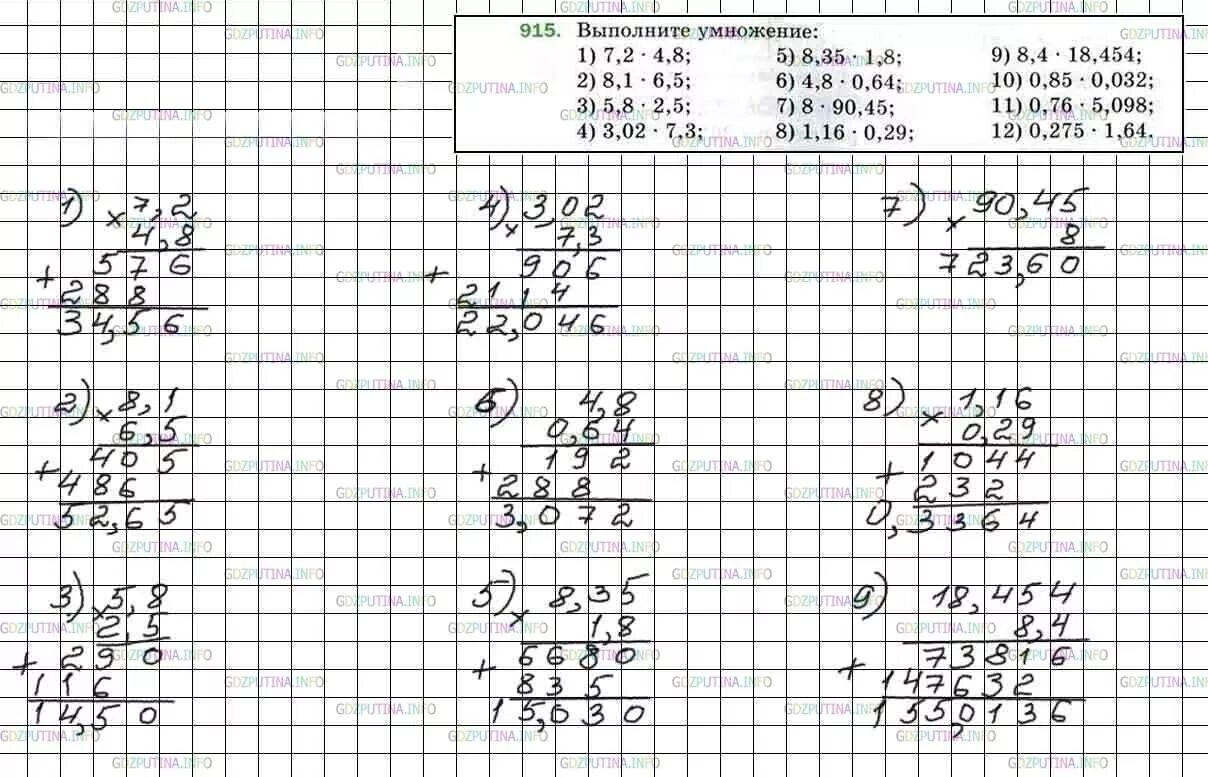 915. Выполните умножение:
1) 7,2 · 4,8;
2) 8,1 · 6,5;
3) 5,8 · 2,5;
4) 3,02 · 7,3;
5) 8,35 · 1,8;
6) 4,8 · 0,64;
7) 8 · 90,45;
8) 1,16 · 0,29;
9) 8,4 · 18,454;
10) 0,85 · 0,032;
11) 0,76 · 5,098;
12) 0,275 · 1,64.
1) × 7,2
4,8
+ 576
288
34,56
4) × 3,02
7,3
+ 906
2114
22,046
7) × 90,45
8
723,60
2) × 8,1
6,5
+ 405
486
52,65
6) 4,8
0,64
+ 192
288
3,072
8) × 1,16
0,29
+ 1044
232
0,3364
3) × 5,8
2,5
+ 290
116
14,50
5) × 8,35
1,8
+ 6680
835
15,030
9) 18,454
8,4
+ 73816
147632
155,0136
GDZPUTINA.INFO